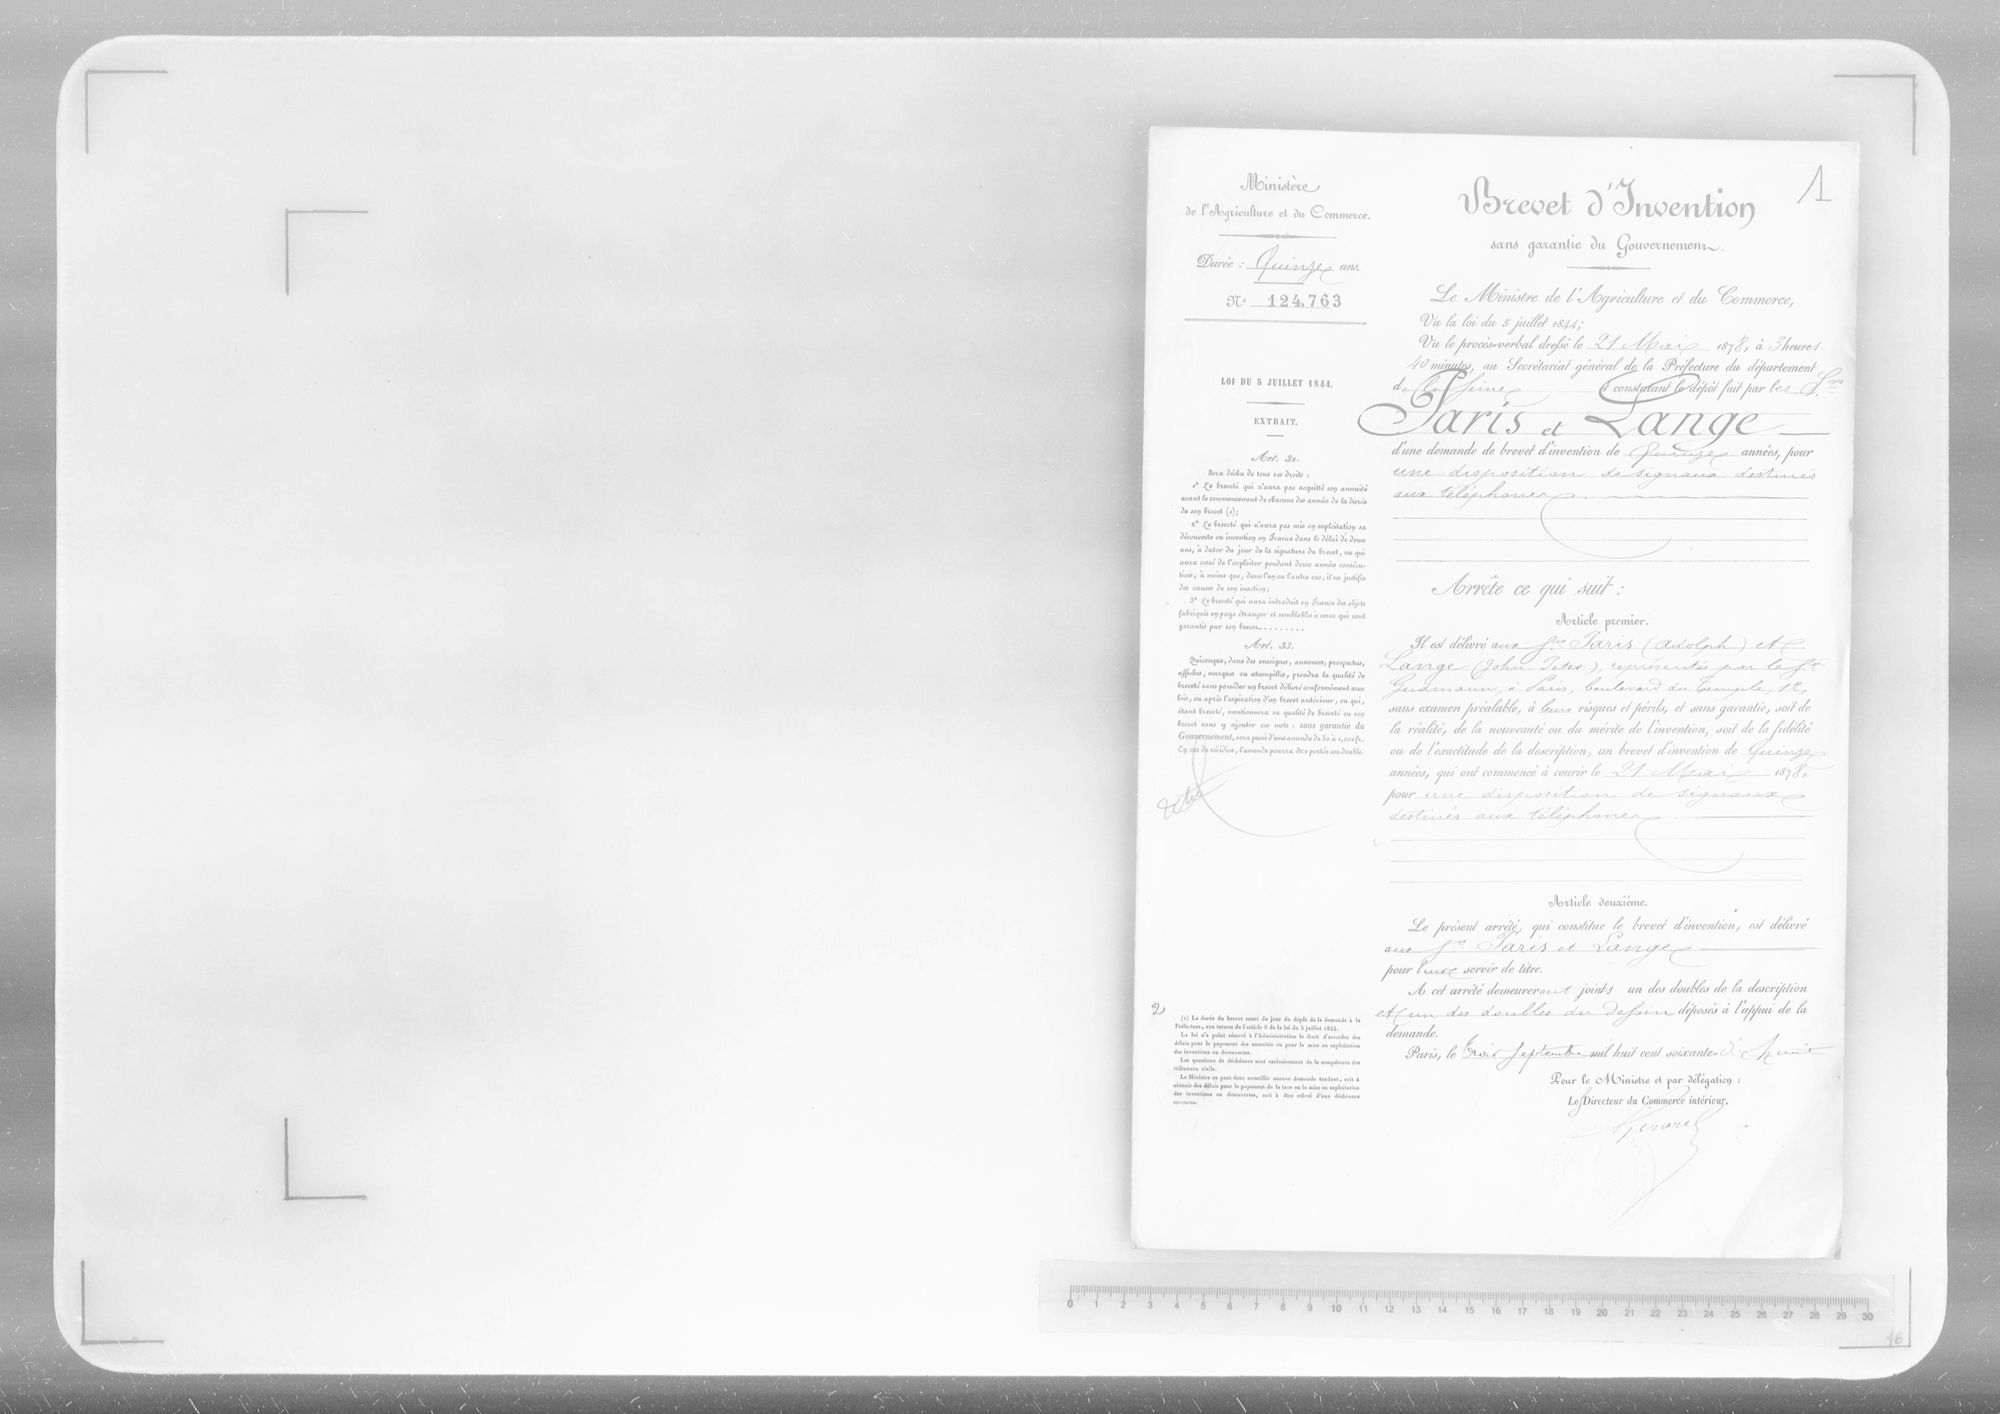 Ministère
de l'Agriculture et du Commerce.
Durée : Quinze ans.
N° 124,763
LOI DU 5 JUILLET 1844.
EXTRAIT.
Art. 32.
Sera déchu de tous ses droits :
1° Le breveté qui n'aura pas acquitté son annuité
avant le commencement de chacune des années de la durée
de son brevet (1);
2° Le breveté qui n'aura pas mis en exploitation sa
découverte ou invention en France dans le délai de deux
ans, à dater du jour de la signature du brevet, ou qui
aura cessé de l'exploiter pendant deux années consécu-
tives, à moins que, dans l'un ou l'autre cas, il ne justifie
des causes de son inaction;
3° Le breveté qui aura introduit en France des objets
fabriqués en pays étranger et semblables à ceux qui sont
garantis par son brevet.........
Art. 33.
Quiconque, dans des enseignes, annonces, prospectus,
affiches, marques ou estampilles, prendra la qualité de
breveté sans posséder un brevet délivré conformément aux
lois, ou après l'expiration d'un brevet antérieur, ou qui,
étant breveté, mentionnera sa qualité de breveté ou son
brevet sans y ajouter ces mots : sans garantie du
Gouvernement, sera puni d'une amende de 50 à 1,000 fr.
En cas de récidive, l'amende pourra être portée au double.
2
(1) La durée du brevet court du jour du dépôt de la demande à la
Préfecture, aux termes de l'article 8 de la loi du 5 juillet 1844.
La loi n'a point réservé à l'Administration le droit d'accorder des
délais pour le payement des annuités ou pour la mise en exploitation
des inventions ou découvertes.
Les questions de déchéance sont exclusivement de la compétence des
tribunaux civils.
Le Ministre ne peut donc accueillir aucune demande tendant, soit à
obtenir des délais pour le payement de la taxe ou la mise en exploitation
des inventions ou découvertes, soit à être relevé d'une déchéance
encourue.
1
Brevet d'Invention
sans garantie du Gouvernement.
Le Ministre de l'Agriculture et du Commerce,
Vu la loi du 5 juillet 1844;
Vu le procès-verbal dressé le 21 Mai 1878, à 3 heures
40 minutes, au Secrétariat général de la Préfecture du département
de la Seine et constatant le dépôt fait par les Srs
Paris et Lange
d'une demande de brevet d'invention de quinze années, pour
une disposition de signaux destinés
aux téléphones.
Arrête ce qui suit :
Article premier.
Il est délivré aux Srs Paris (Adolph) et
Lange (John Peter), représentés par le Sr
Gudmann, à Paris, boulevard du Temple, 12,
sans examen préalable, à leurs risques et périls, et sans garantie, soit de
la réalité, de la nouveauté ou du mérite de l'invention, soit de la fidélité
ou de l'exactitude de la description, un brevet d'invention de quinze
années, qui ont commencé à courir le 21 Mai 1878,
pour une disposition de signaux
destinés aux téléphones
Article deuxième.
Le présent arrêté, qui constitue le brevet d'invention, est délivré
aux Srs Paris et Lange
pour leur servir de titre.
A cet arrêté demeureront joints un des doubles de la description
et un des doubles du dessin déposés à l'appui de la
demande.
Paris, le trois Septembre mil huit cent soixante-dix-huit
Pour le Ministre et par délégation :
Le Directeur du Commerce intérieur,
Girard
0 1 2 3 4 5 6 7 8 9 10 11 12 13 14 15 16 17 18 19 20 21 22 23 24 25 26 27 28 29 30
16